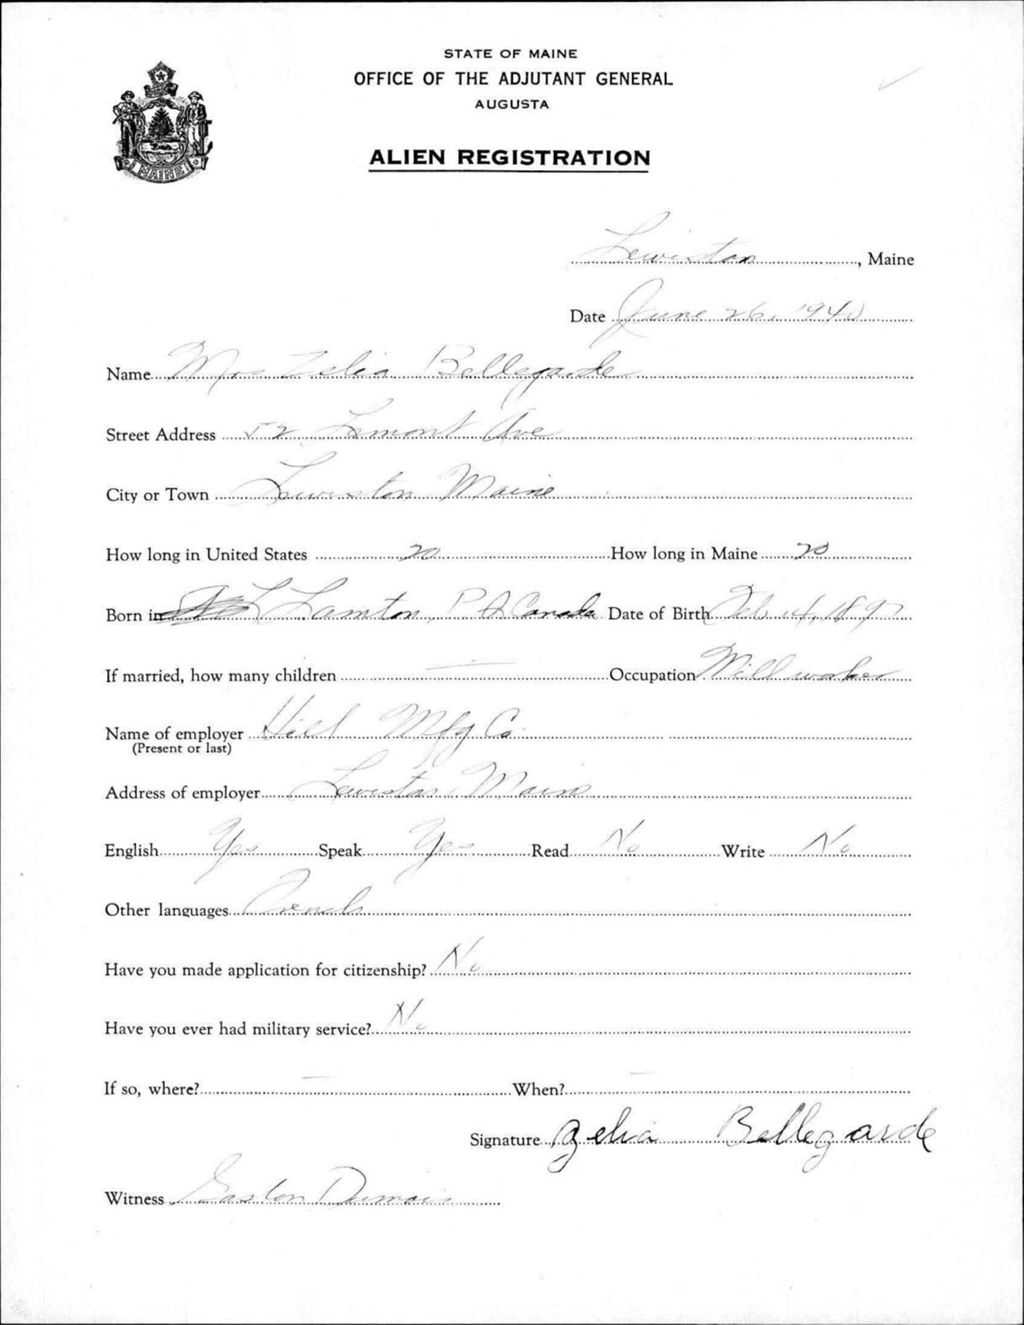 STATE OF MAINE
OFFICE OF THE ADJUTANT GENERAL
AUGUSTA
MAINE
ALIEN REGISTRATION
Lewiston, Maine
Date June 26, 1940
Name Mrs Zelia Bellegarde
Street Address 52 Lemont Ave
City or Town Lewiston Maine
How long in United States 20 How long in Maine 20
Born in Canada Date of Birth Feb 14, 1897
If married, how many children — Occupation Mill worker
Name of employer Hill Mfg Co.
(Present or last)
Address of employer Lewiston, Maine
English Yes Speak Yes Read No Write No
Other languages French
Have you made application for citizenship? No
Have you ever had military service? No
If so, where? — When? —
Signature Zelia Bellegarde
Witness Gaston Dumais